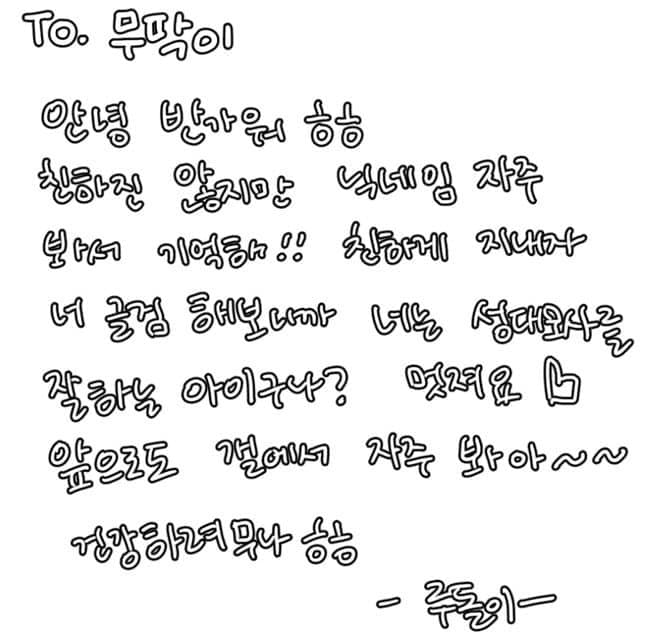 To. 무딱이
안녕 반가워 흐흐
친하진 않지만 닉네임 자주
봐서 기억해!! 친하게 지내자
너 글검 해보니까 너는 성대묘사를
잘하는 아이구나? 멋져요
앞으로도 갤에서 자주 봐아~~
건강하려무나 흐흐
- 주돌이 -